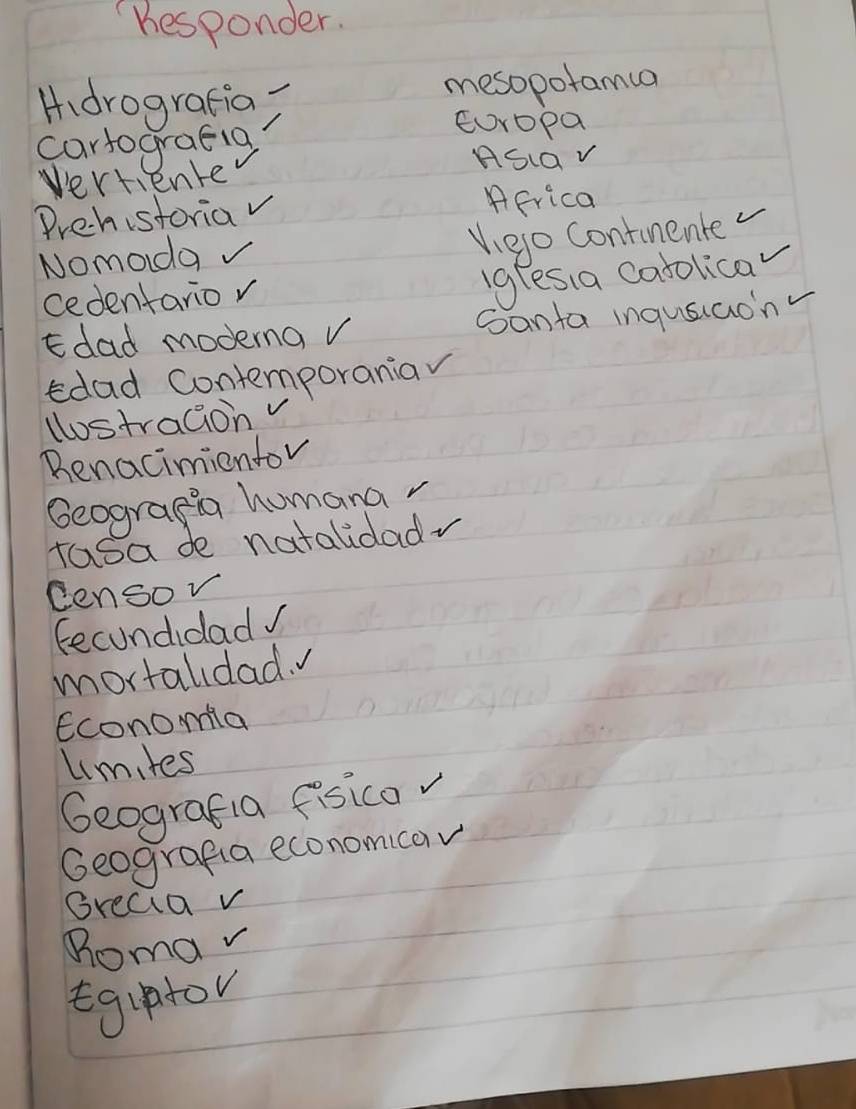 Responder.
Hidrografia
Cartografia
Vertiente
Prehistoria
Nomada
Cedentario
Edad moderna
Edad Contemporania
Ilustración
Renacimiento
Geografia humana
Tasa de natalidad
Censo
Fecundidad
mortalidad.
Economia
limites
Geografia fisica
Geografia economica
Grecia
Roma
Egipto
mesopotamia
Europa
Asia
Africa
Viejo Continente
iglesia catolica
Santa inqusición